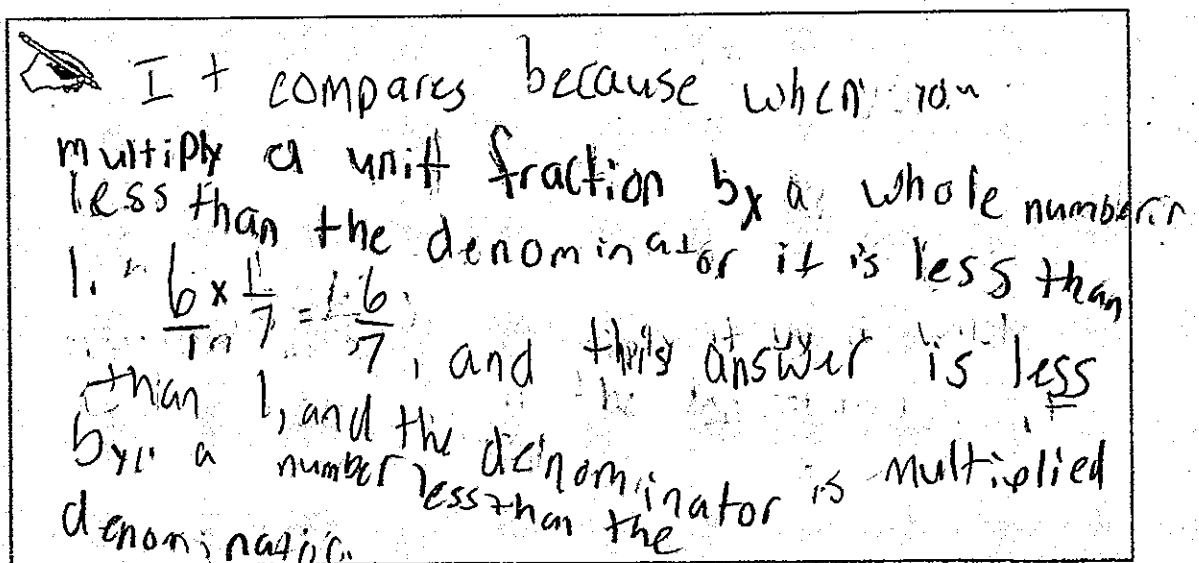 It compares because when you
multiply a unitt fraction by a whole number
less than the denominator it is less than
1. 6/1 x 1/7 = 6/7, and this answer is less
than 1, and the denominator is multiplied
by a number less than the
denominator.